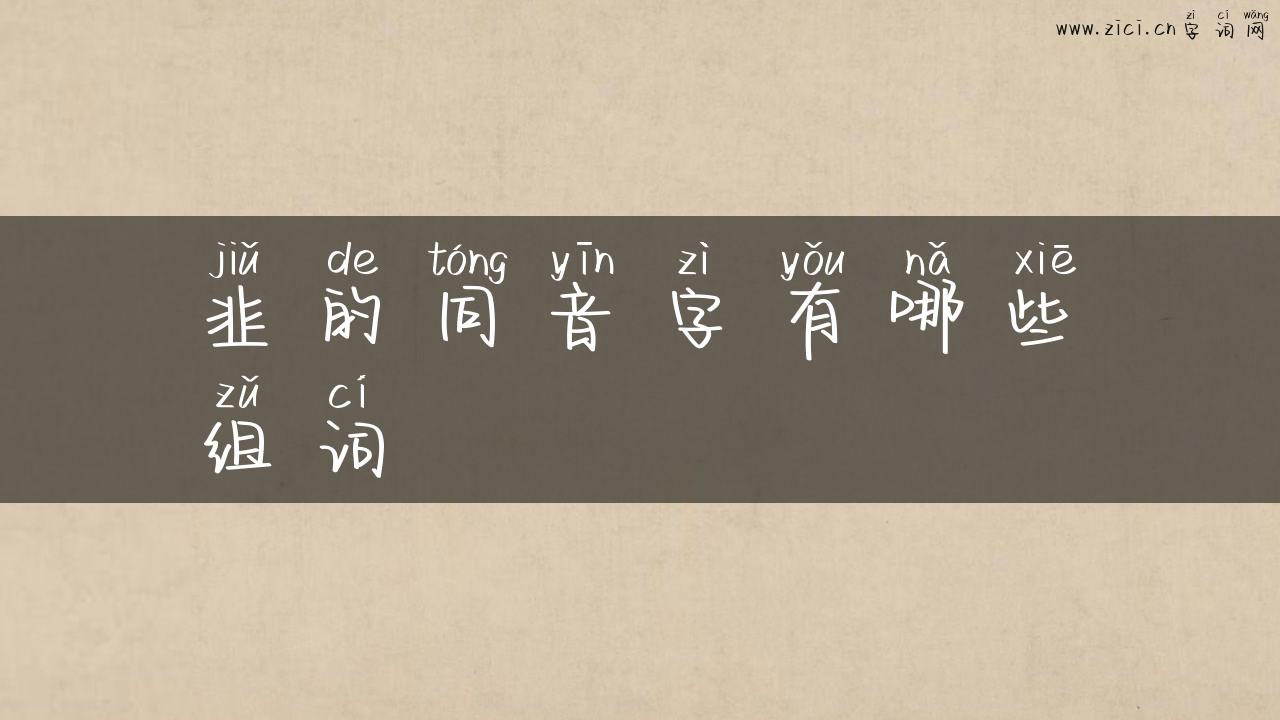 zì cí wǎng
www.zici.cn 字词网
jiǔ de tóng yīn zì yǒu nǎ xiē
韭的同音字有哪些
zǔ cí
组词